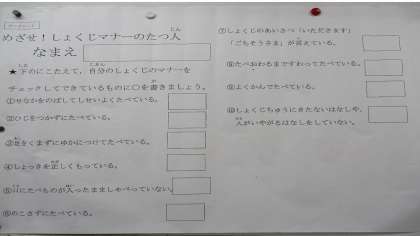 ワークシート
めざせ！しょくじマナーのたつ人
じん
なまえ
★下のにこたえて、自分のしょくじのマナーを
チェックしてできているものに○を書きましょう。
①せなかをのばしてしせいよくたべている。
②ひじをつかずにたべている。
③をくまずにゆかにつけてたべている。
④しょっきを正しくもっている。
⑤口にたべものが入ったまましゃべっていない。
⑥のこさずにたべている。
⑦しょくじのあいさつ「いただきます」
「ごちそうさま」が言えている。
⑧たべおわるまですわってたべている。
⑨よくかんでたべている。
⑩しょくじちゅうにきたないはなしや、
人がいやがるはなしをしていない。